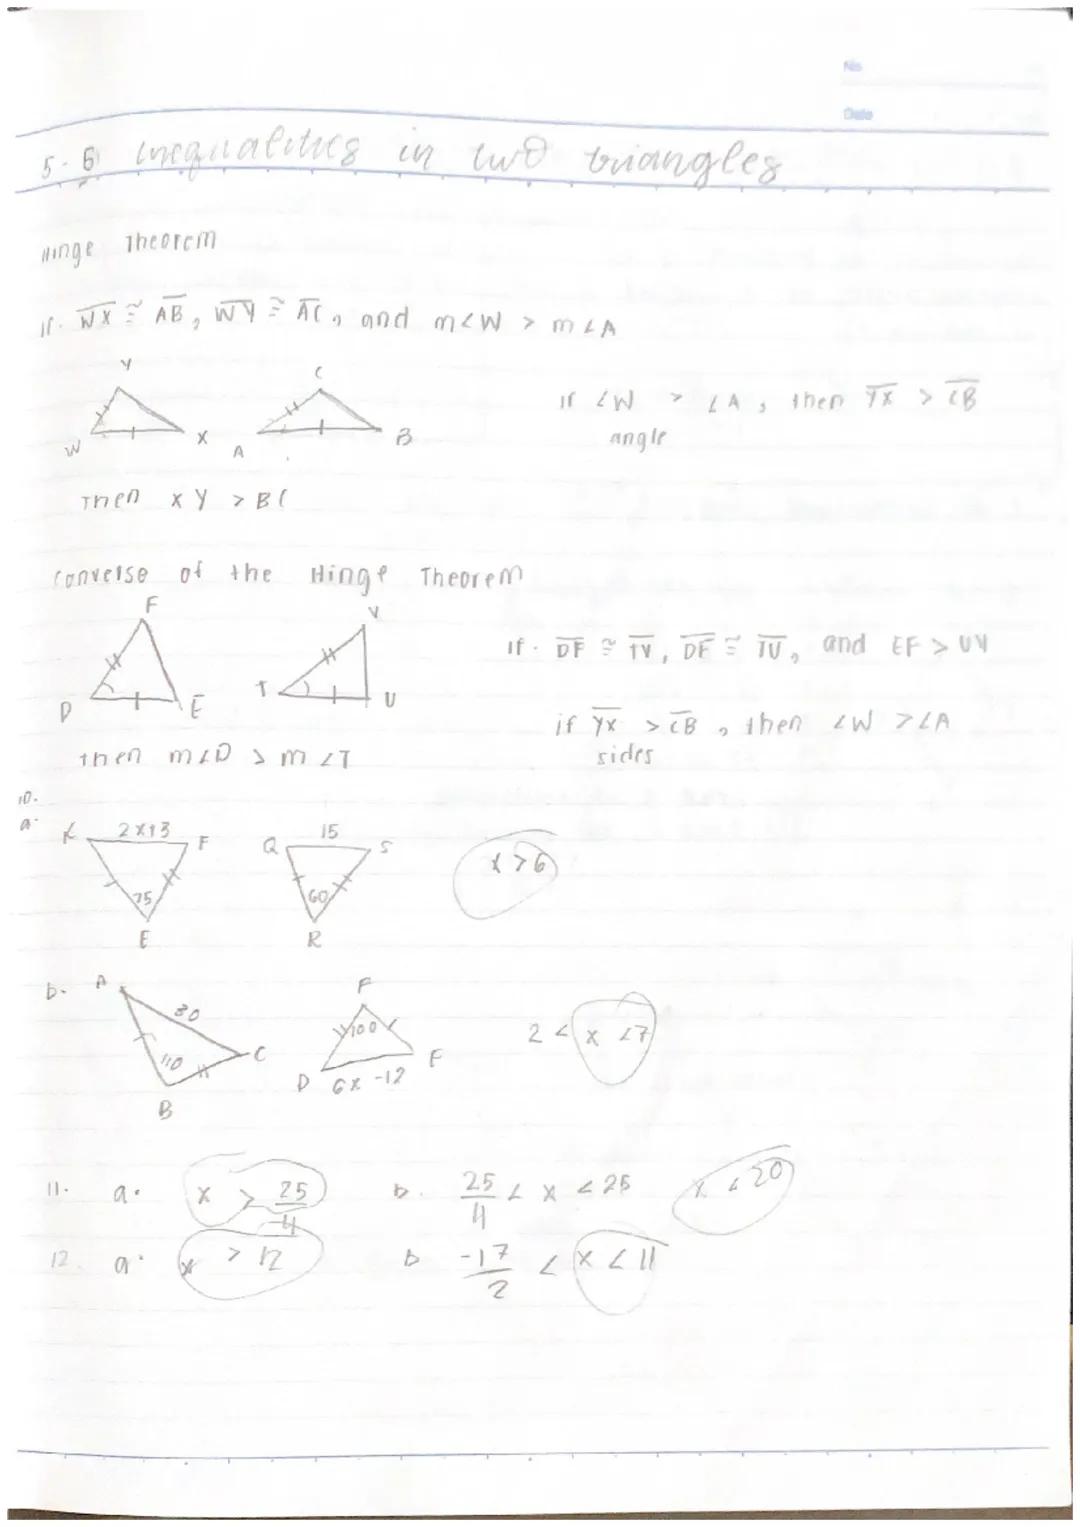 No
Date
5-6 inequalities in two triangles
Hinge Theorem
If. WX ≅ AB, WY ≅ AC, and m∠W > m∠A
Y
C
W
X
A
B
If ∠W > ∠A, then YX > CB
angle
Then XY > BC
Converse of the Hinge Theorem
F
V
D
E
T
U
If. DF ≅ TV, DE ≅ TU, and EF > UV
if YX > CB, then ∠W > ∠A
sides
then m∠D > m∠T
10.
a.
K 2x+3 F
Q 15 S
x > 6
75
60
E
R
b. A
80
110
C
B
F
100
D 6x -12
E
2 < x < 7
11. a. x > 25/4 b. 25/4 < x < 25 x < 20
12 a. x > 12 b -17/2 < x < 11